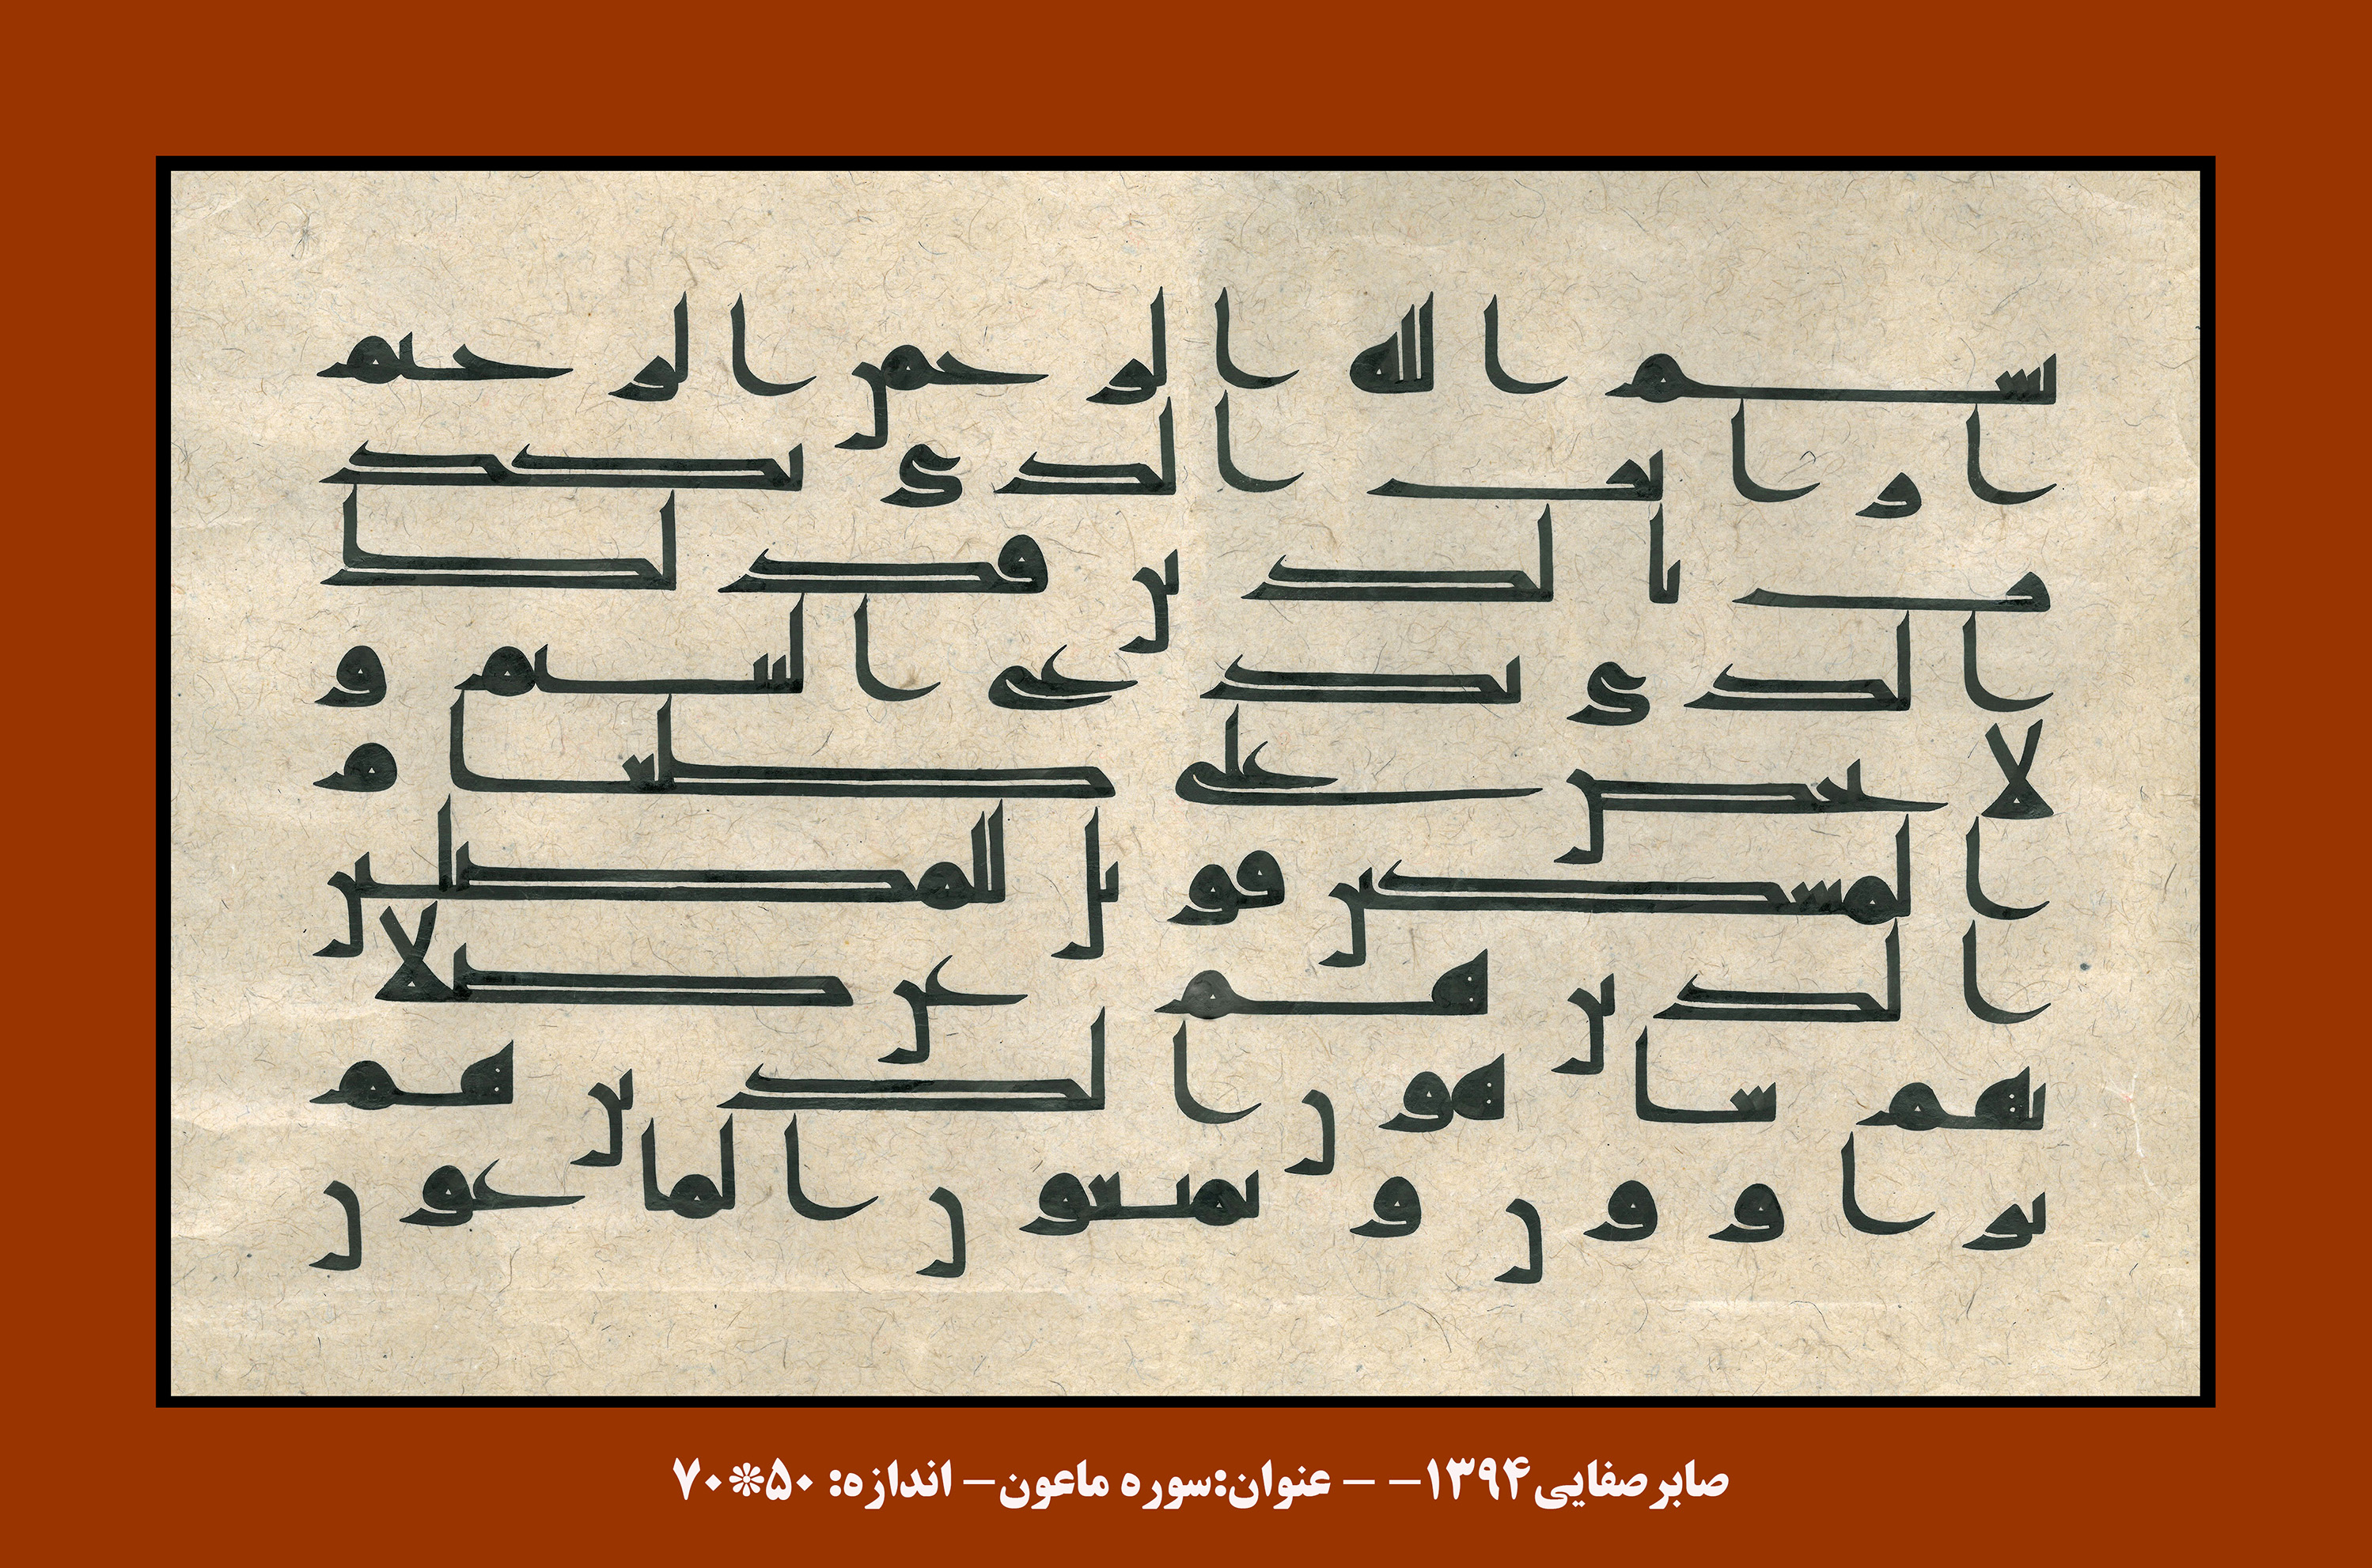 بسم الله الرحمن الرحيم
ارايت الذي يكذ
ب بالدين فذلك
الذي يدع اليتيم و
لا يحض على طعام
المسكين فويل للمصلين
الذين هم عن صلا
تهم ساهون الذين هم
يراوون و يمنعون الماعون
صابرصفایی۱۳۹۴– – عنوان:سوره ماعون– اندازه: ۵۰❊۷۰